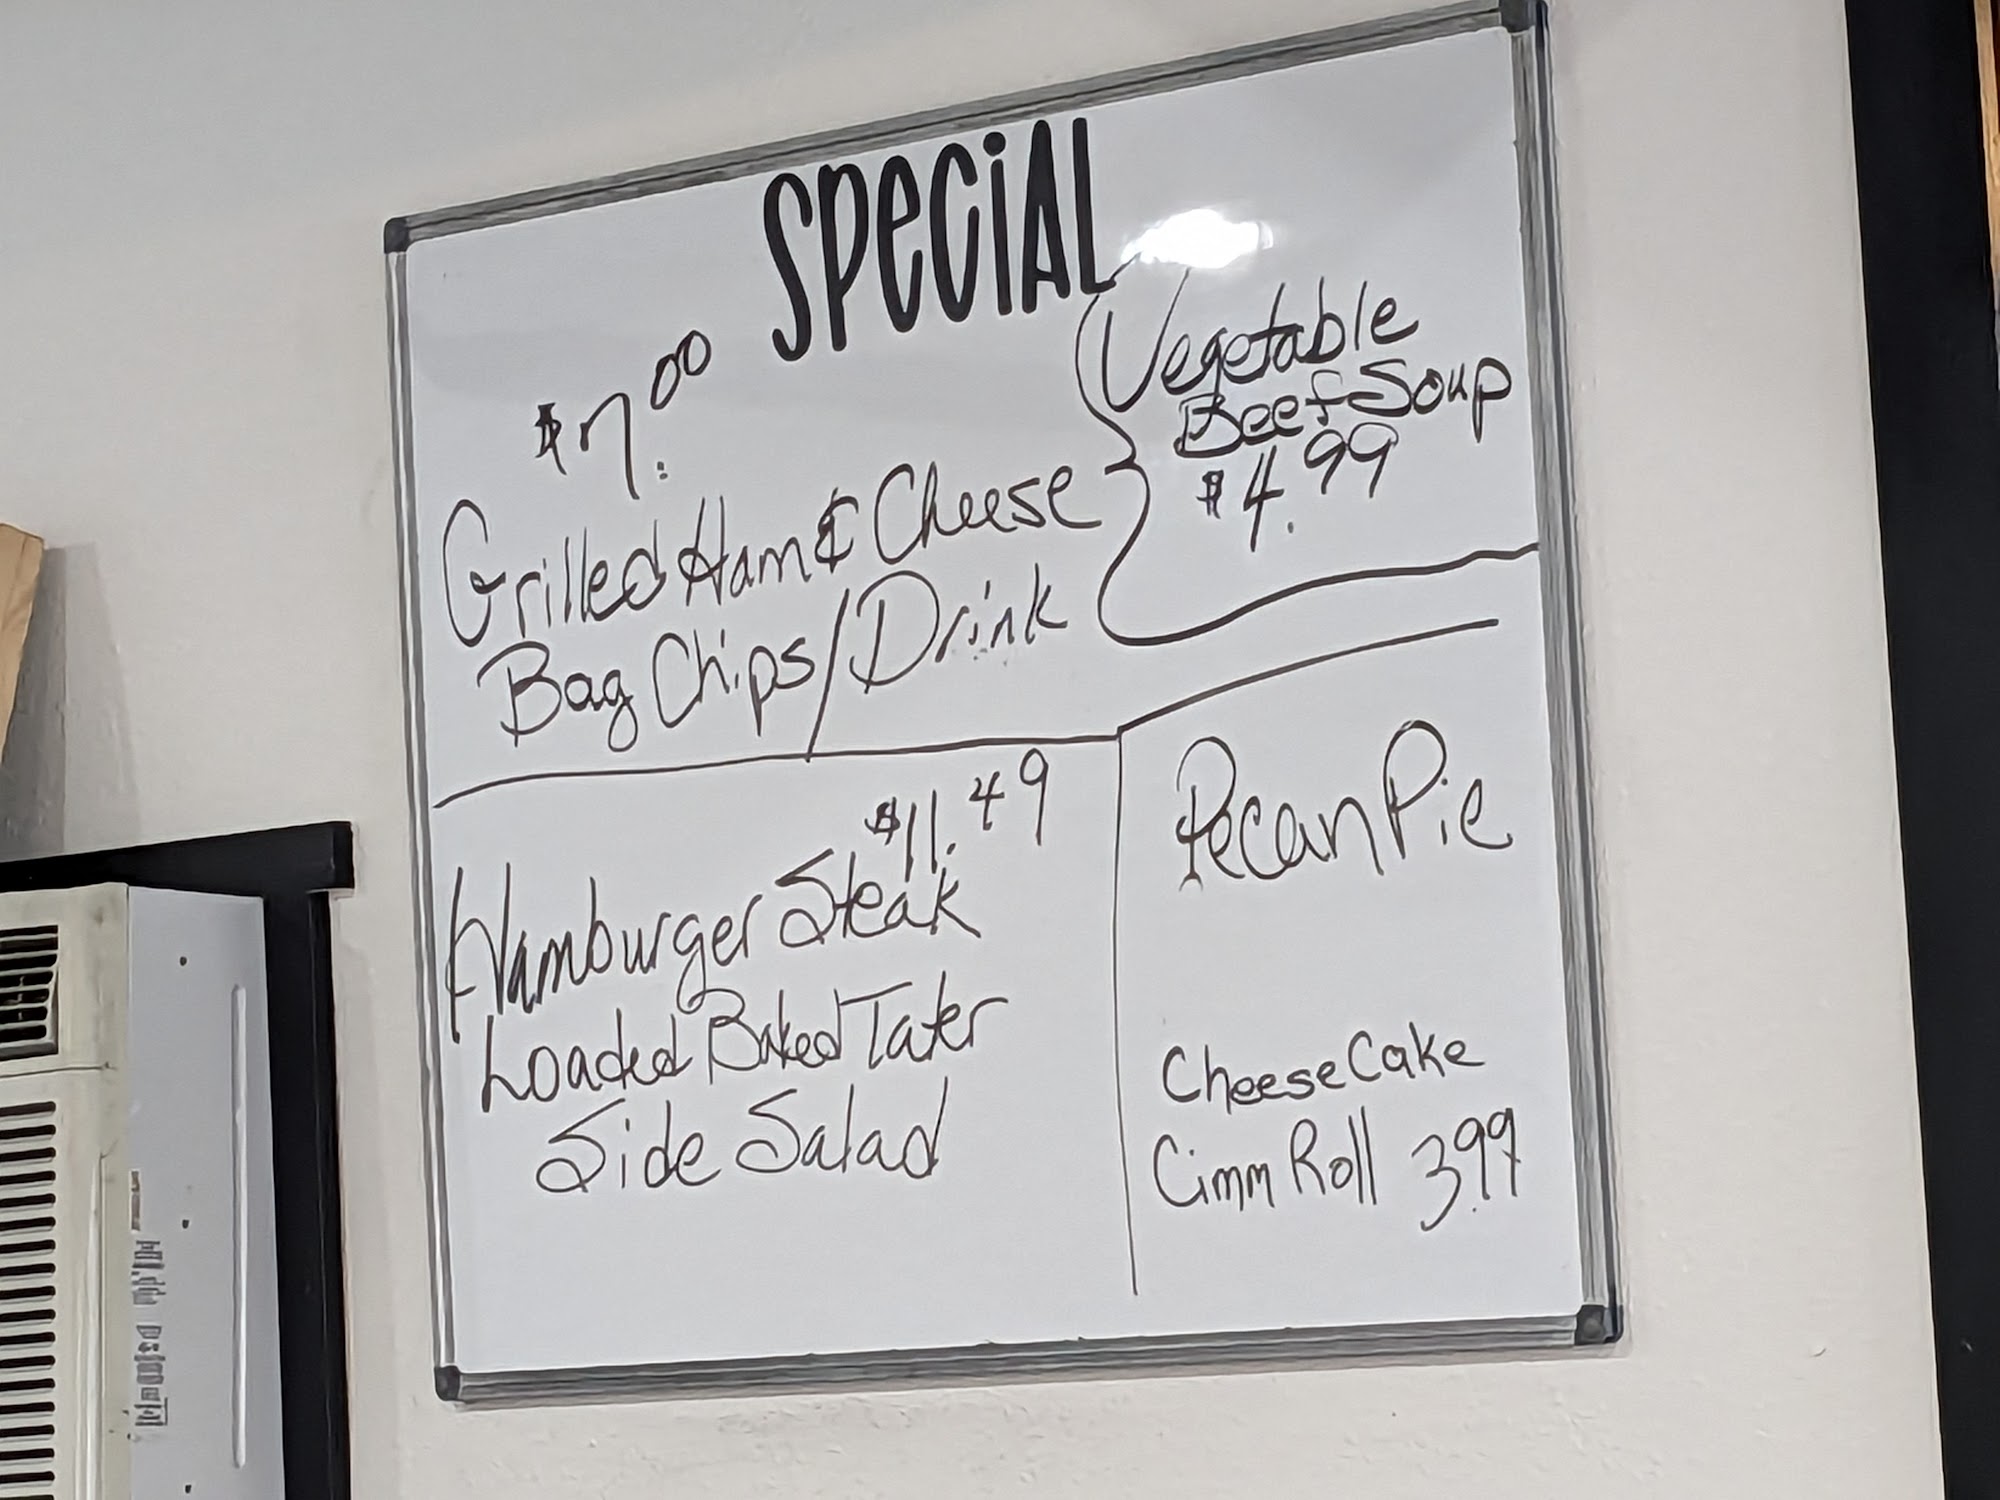 SPeCiAL
$7.00
Grilled Ham & Cheese
Bag Chips/Drink
Vegetable
Beef Soup
$4.99
$11.49
Hamburger Steak
Loaded Baked Tater
Side Salad
Pecan Pie
Cheese Cake
Cimm Roll 3.99